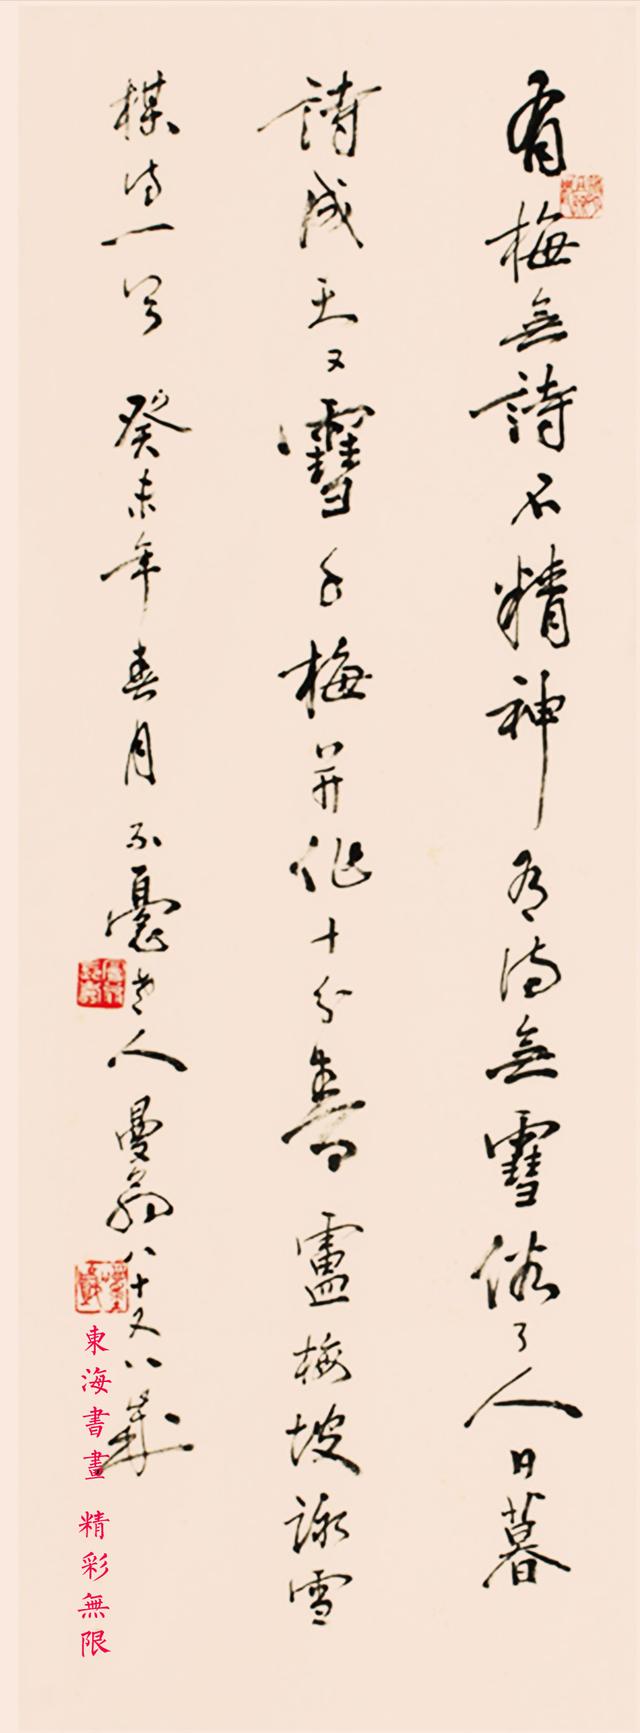 有梅無詩不精神有诗無雪俗了人日暮
詩成天又雪与梅并作十分春盧梅坡詠雪
楳诗一首癸未年春月不老人曼翁八十又八歲
東海書畫 精彩無限